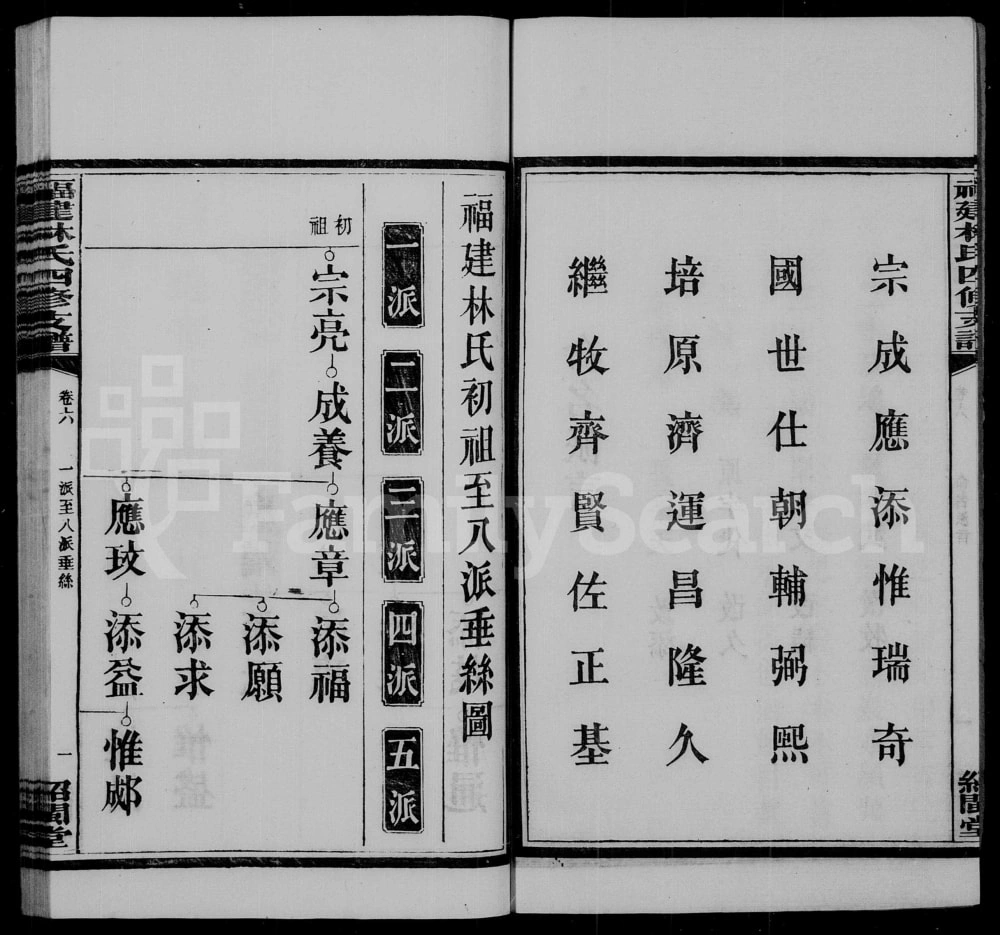 福建林氏四修支譜
紹聞堂
宗成應添惟瑞奇
國世仕朝輔弼熙
培原濟運昌隆久
繼牧齊賢佐正基
福建林氏初祖至八派垂絲圖
一派
二派
三派
四派
五派
初祖
宗亮
成養
應章
添福
添願
添求
應玟
添益
惟郕
福建林氏四修支譜
卷六
一派至八派垂絲
一
紹聞堂
FamilySearch